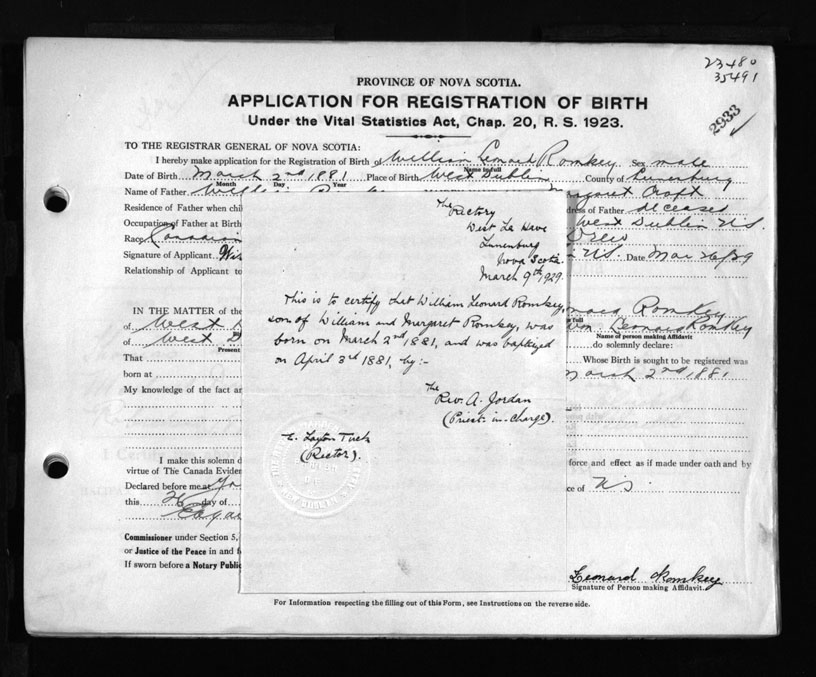 23480
35491
2933
PROVINCE OF NOVA SCOTIA.
APPLICATION FOR REGISTRATION OF BIRTH
Under the Vital Statistics Act, Chap. 20, R. S. 1923.
TO THE REGISTRAR GENERAL OF NOVA SCOTIA:
I hereby make application for the Registration of Birth of William Leonard Romkey Sex male
Name in full
Date of Birth March 2nd 1881 Place of Birth West Dublin County of Lunenburg
Month Day Year
Name of Father Margaret Croft
Residence of Father when chil dress of Father deceased
Occupation of Father at Birth West Dublin N.S.
Race Canadian
Signature of Applicant. N.S. Date Mar 26/29
Relationship of Applicant to
The Rectory
West La Have
Lunenburg
Nova Scotia.
March 9th, 1929.
This is to certify that William Leonard Romkey,
son of William and Margaret Romkey, was
born on March 2nd 1881, and was baptized
on April 3rd 1881, by:-
The
Rev. A. Jordan
(Priest-in-Charge).
(Rector).
IN THE MATTER of the Romkey
of West D Leonard Romkey
of West D Name of person making Affidavit
Present do solemnly declare:
That Whose Birth is sought to be registered was
born at March 2nd 1881
My knowledge of the fact ar
I make this solemn d force and effect as if made under oath and by
virtue of The Canada Eviden
Declared before me at ce of N.S.
this 26 day of
Commissioner under Section 5,
or Justice of the Peace in and f
If sworn before a Notary Public
Leonard Romkey
Signature of Person making Affidavit.
For Information respecting the filling out of this Form, see Instructions on the reverse side.